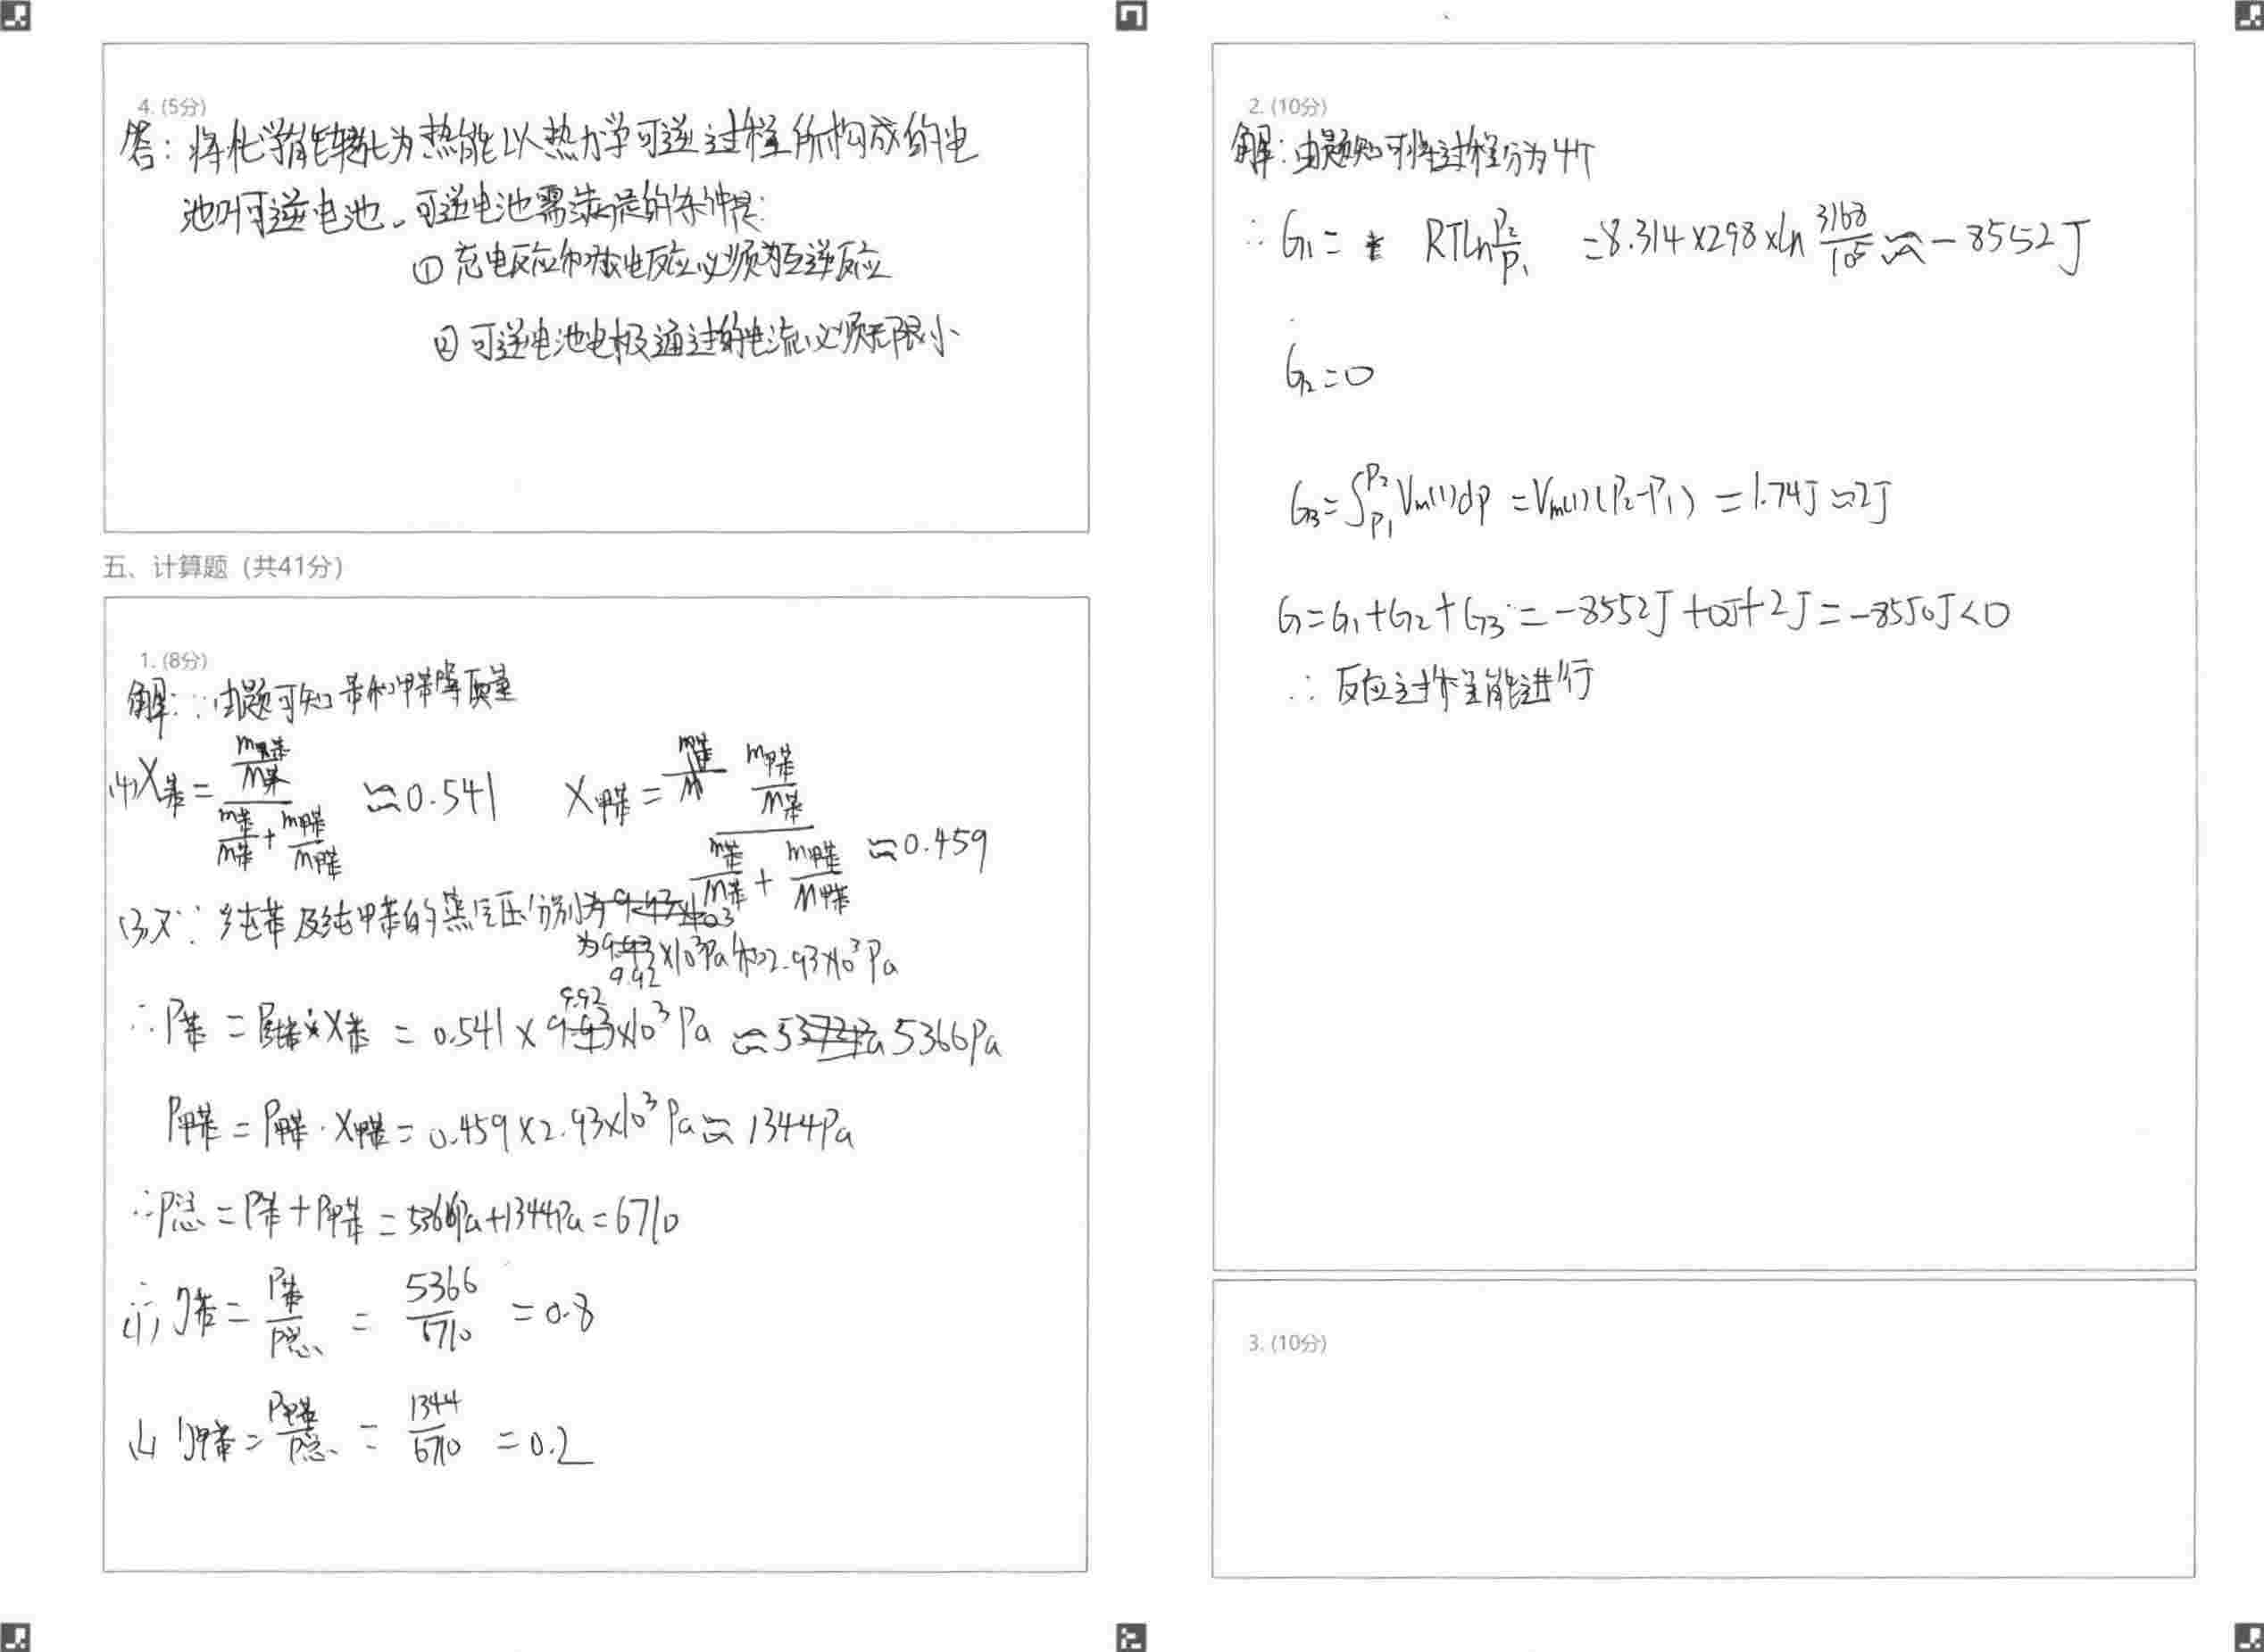 4. (5分)
答：将化学能转化为热能以热力学可逆过程所构成的电
池叫可逆电池。可逆电池需满足的条件是：
① 充电反应和放电反应必须为互逆反应
② 可逆电池电极通过的电流必须无限小
五、计算题（共41分）
1. (8分)
解：∵由题可知 苯和甲苯等质量
(4) X苯 = (m苯/M苯)/(m苯/M苯 + m甲苯/M甲苯) ≈0.541 X甲苯 = (m甲苯/M苯)/(m苯/M苯 + m甲苯/M甲苯) ≈0.459
(3)又∵纯苯及纯甲苯的蒸气压分别为
为9.92×10³Pa和2.93×10³Pa
∴P苯 = P纯苯·X苯 = 0.541×9.92×10³Pa ≈ 5366Pa
P甲苯 = P甲苯·X甲苯 = 0.459×2.93×10³Pa≈1344Pa
∴P总=P苯+P甲苯=5366Pa+1344Pa=6710
∴(1) y苯 = P苯/P总 = 5366/6710 = 0.8
y甲苯 = P甲苯/P总 = 1344/6710 = 0.2
2. (10分)
解：由题知可将过程分为4个
∴ G₁ = RTln P₂/P₁ =8.314×298×ln 3168/10⁵ ≈ -8552J
G₂=0
G₃=∫P₁P₂ Vm(l)dp =Vm(l)(P₂-P₁) =1.74J≈2J
G=G₁+G₂+G₃=-8552J+0J+2J=-8550J<0
∴ 反应过程能进行
3. (10分)